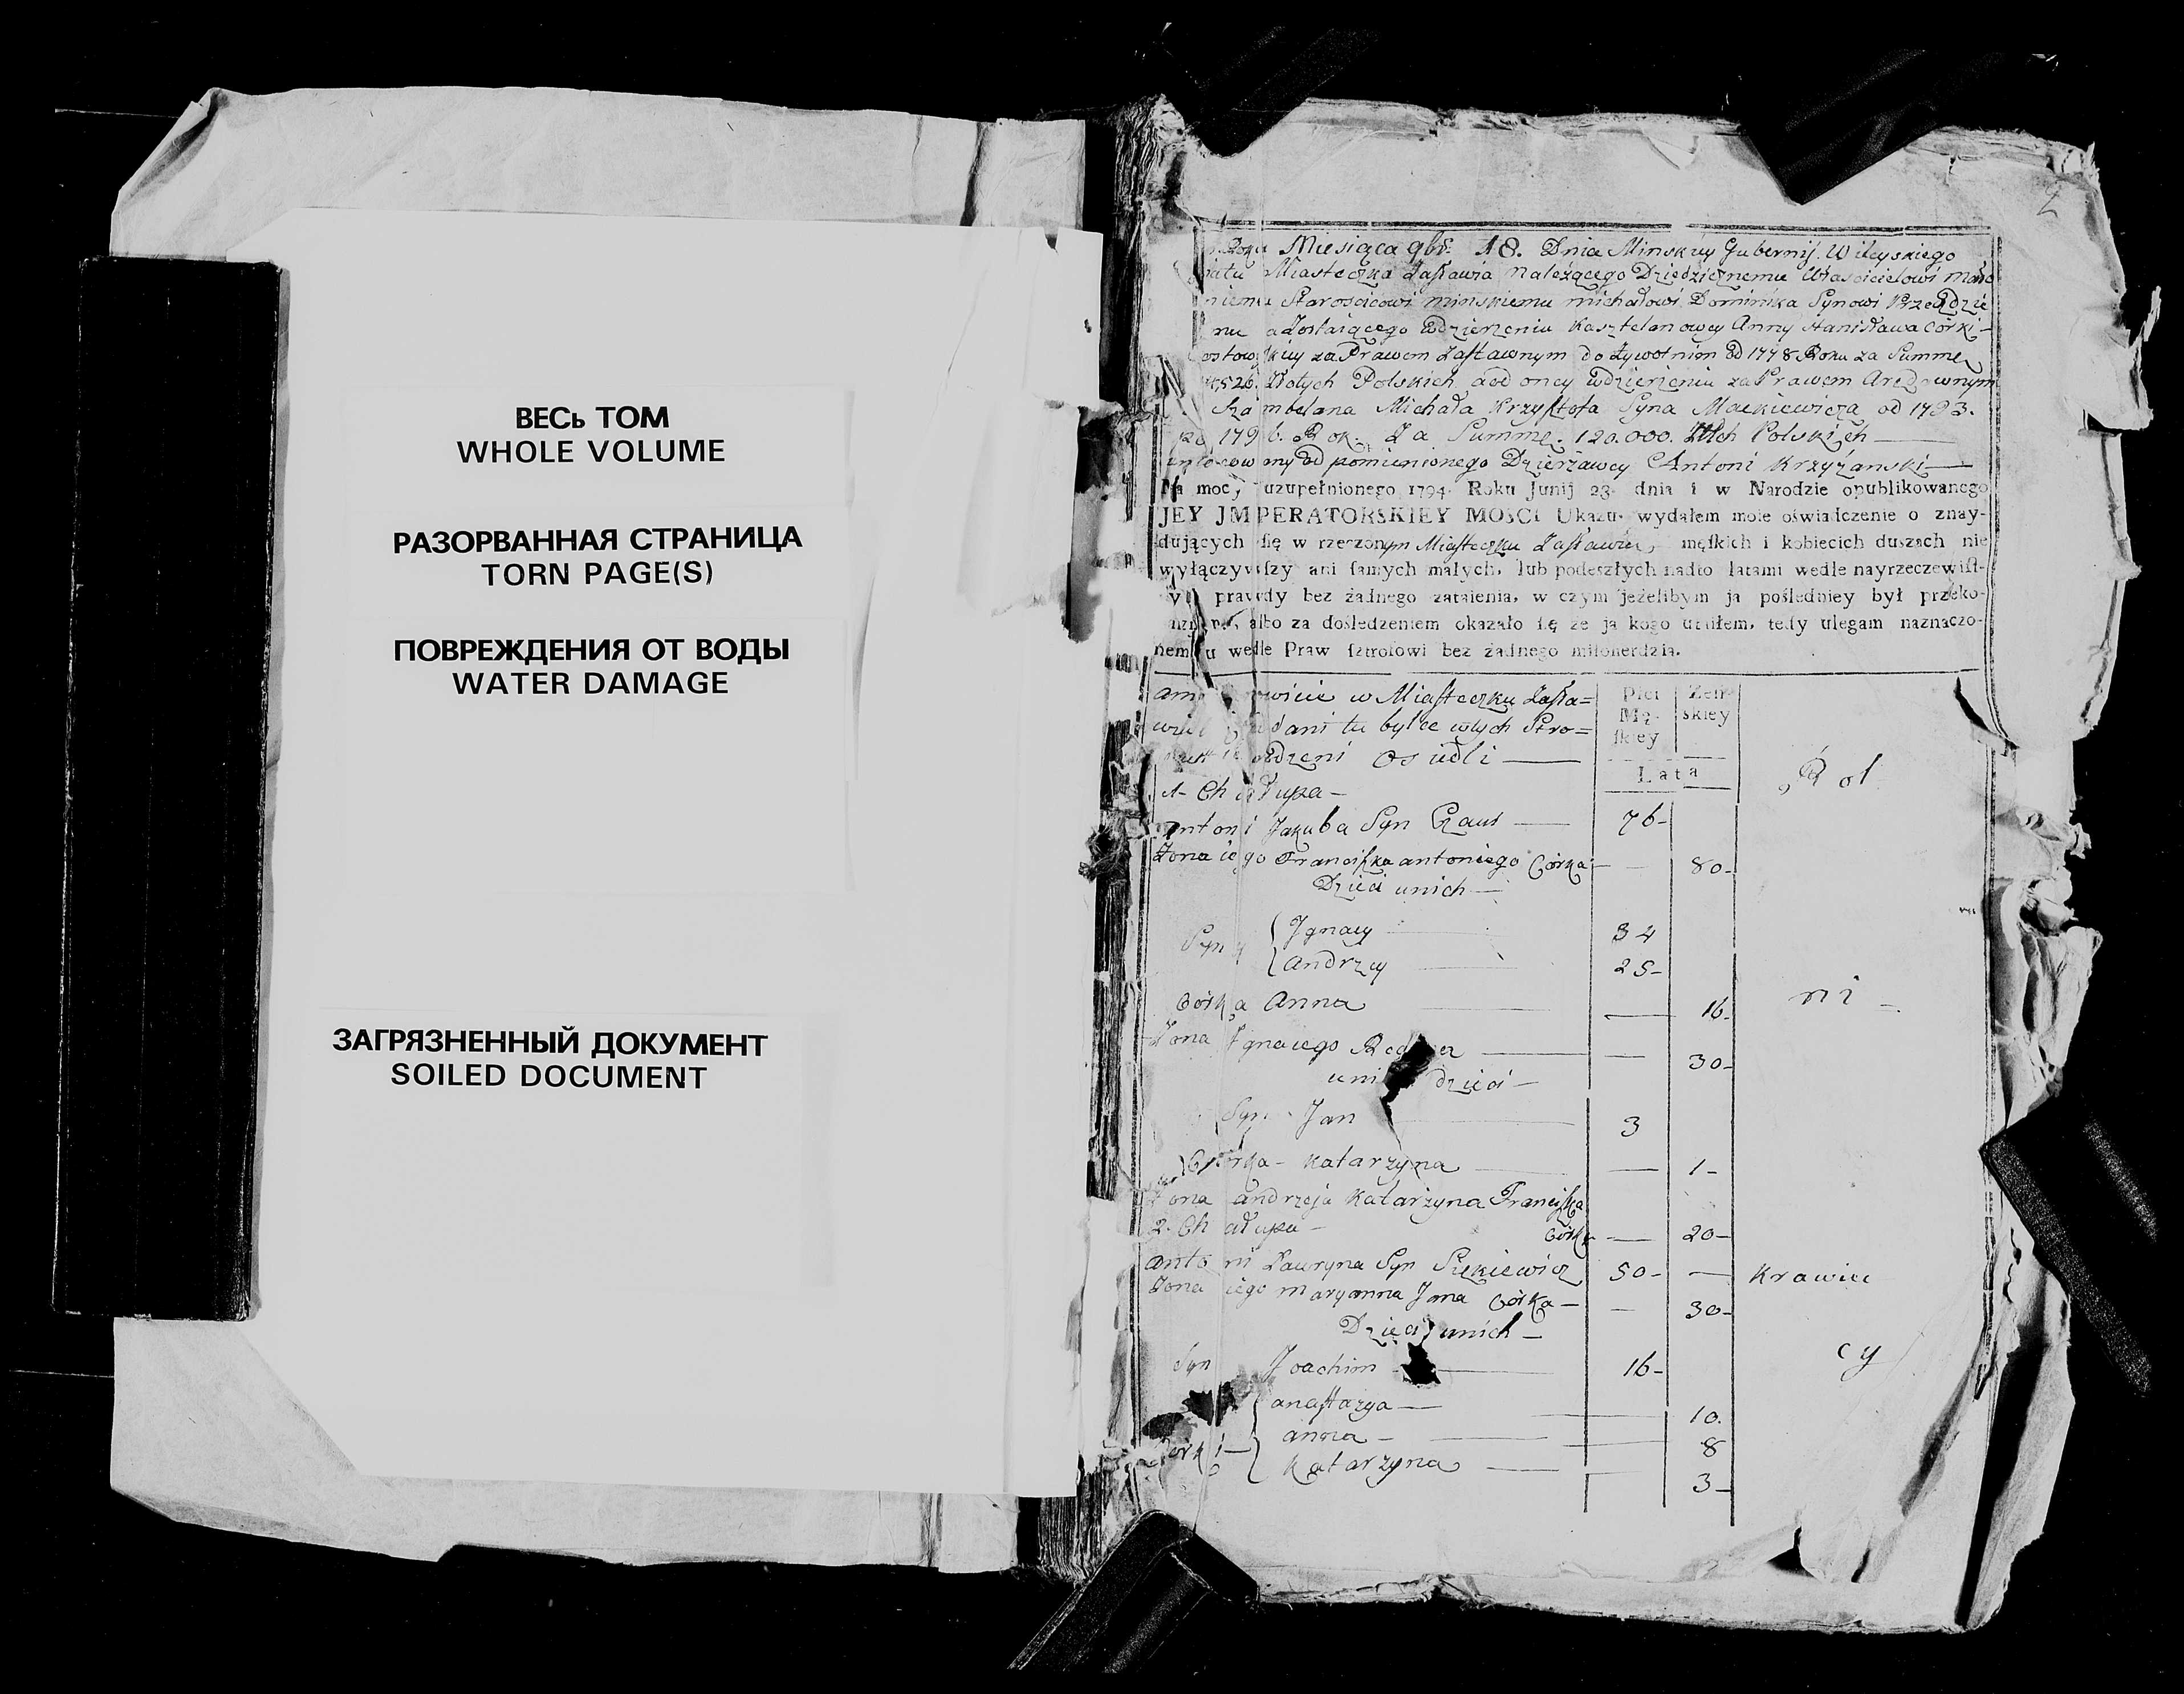 ВЕСЬ ТОМ
WHOLE VOLUME
РАЗОРВАННАЯ СТРАНИЦА
TORN PAGE(S)
ПОВРЕЖДЕНИЯ ОТ ВОДЫ
WATER DAMAGE
ЗАГРЯЗНЕННЫЙ ДОКУМЕНТ
SOILED DOCUMENT
2
Roku Miesiąca 9br. 18. Dnia Minskiey Gubernij. Wileyskiego
Miasteczka Zasławia należącego Dziedzicznemu Własicielowi
Starościcowi minskiemu michałowi Dominika Synowi Przeździe
a Zostaiącego wdzierzeniu Kasztelanowey Anny Stanisława Córki
za Prawem Zastawnym do Zywotnim od 1778 Roku za Summę
526. Złotych Polskich, a od oney wdzierzeniu za Prawem Arędownym
Szambelana Michała Krzysztofa Syna Mackiewicza od 1793.
po 1796. Rok. Za Summę. 120.000. Złłch Polskich
od pomienionego Dzierżawcy Antoni Krzyżanski
Na mocy uzupełnionego 1794. Roku Junij 23. dnia i w Narodzie opublikowanego
JEY JMPERATORSKIEY MOSCI Ukazu. wydałem moie oświadczenie o znay-
dujących się w rzeczonym Miasteczku Zasławiu, męskich i kobiecich duszach nie
wyłączywszy ani samych małych, lub podeszłych nadto latami wedle nayrzeczewist-
prawdy bez żadnego zataienia, w czym jeżelibym ja pośledniey był przeko-
albo za dośledzeniem okazało się że ja kogo utaiłem, tedy ulegam naznaczo-
nemu wedle Praw sztrofowi bez żadnego miłosierdzia.
w Miasteczku Zasła=
tu bylce wtych Stro=
Osiedli
Płci Mę- skiey
Żeń- skiey
Lata
Rol
1- Chałupa-
Antoni Jakuba Syn Czaus 76-
Zona iego Franciszka antoniego Córka 80-
Dzieci unich
Syny Jgnacy 34
Andrzey 25-
Córka Anna 16- ni
Zona Jgnacego 30-
dzieci
Syn Jan 3
Córka- Katarzyna 1-
Zona andrzeja Katarzyna Franciszka
2- Chałupa- Córka 20-
Antoni Ławryna Syn 50- Krawiec
Zona iego maryanna Jana Córka 30-
Dzieci unich
Syn Joachim 16- cy
anastazya 10.
Córki anna 8
Katarzyna 3-